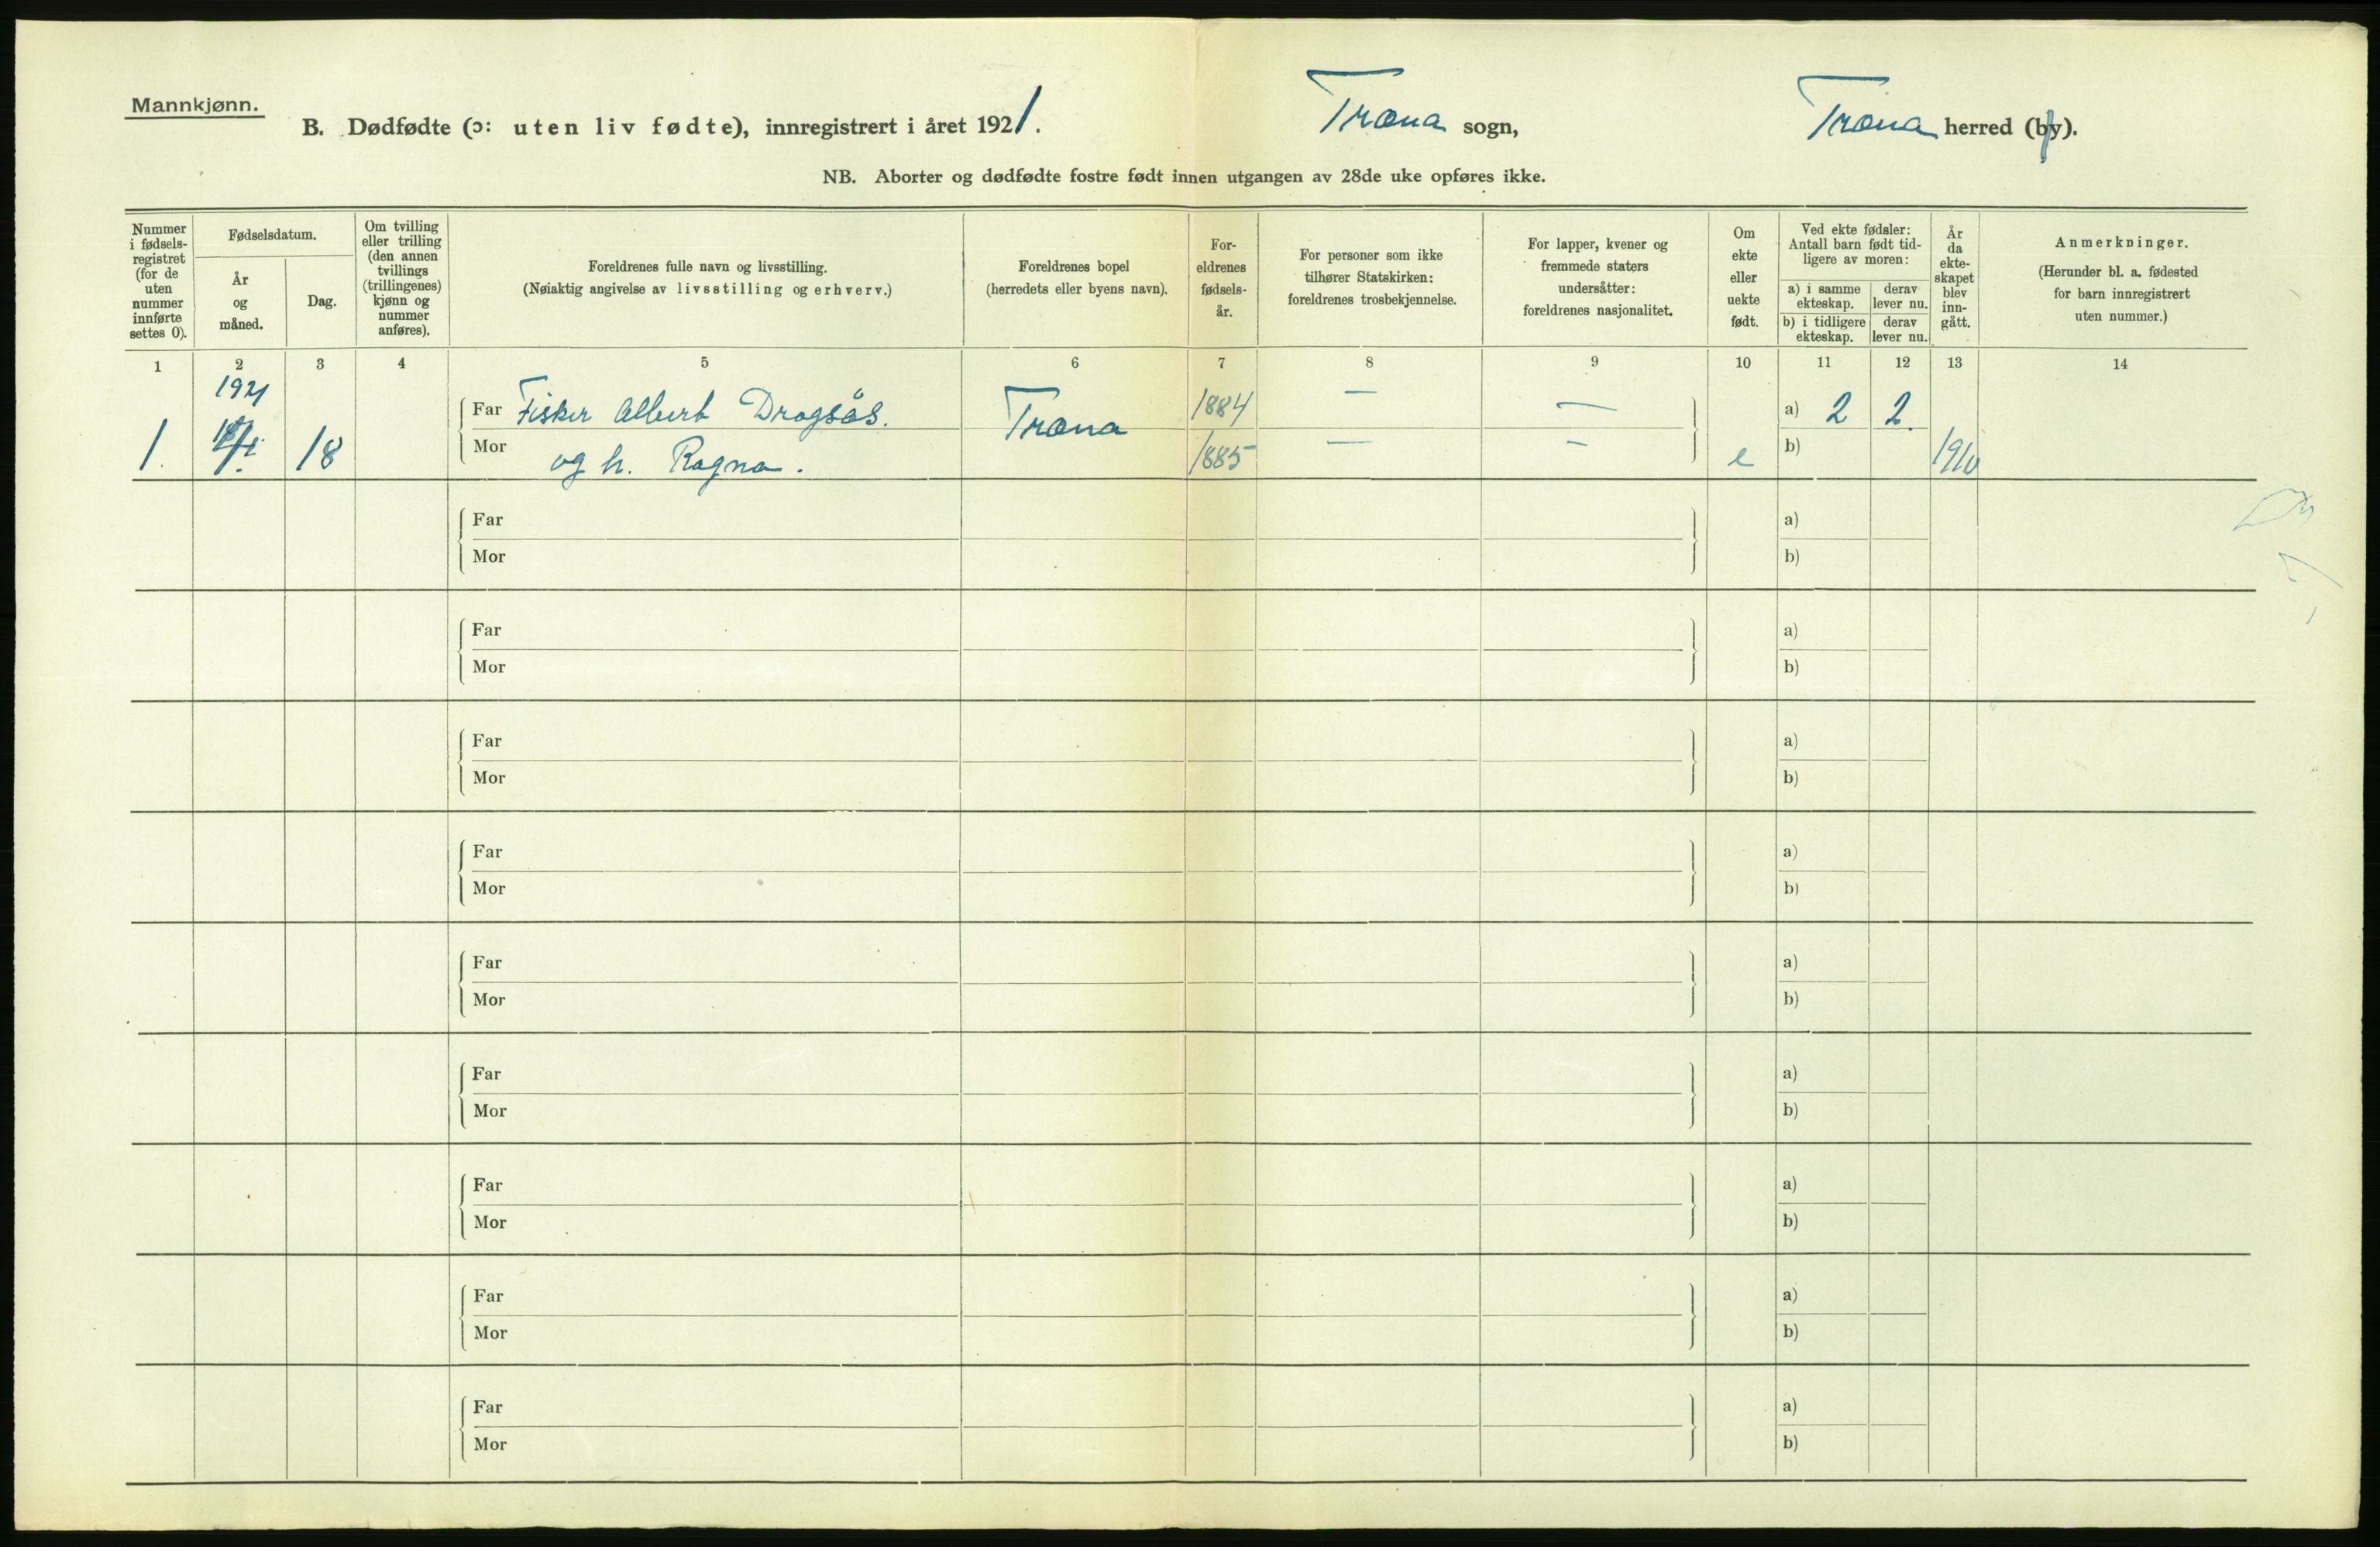 Mannkjønn.
B. Dødfødte (ɔ: uten liv fødte), innregistrert i året 1921. Træna sogn, Træna herred (by).
NB. Aborter og dødfødte fostre født innen utgangen av 28de uke opføres ikke.
Nummer
i fødsels-
registret
(for de
uten
nummer
innførte
settes 0).
Fødselsdatum.
År
og
måned.
Dag.
Om tvilling
eller trilling
(den annen
tvillings
(trillingenes)
kjønn og
nummer
anføres).
Foreldrenes fulle navn og livsstilling.
(Nøiaktig angivelse av livsstilling og erhverv.)
Foreldrenes bopel
(herredets eller byens navn).
For-
eldrenes
fødsels-
år.
For personer som ikke
tilhører Statskirken:
foreldrenes trosbekjennelse.
For lapper, kvener og
fremmede staters
undersåtter:
foreldrenes nasjonalitet.
Om
ekte
eller
uekte
født.
Ved ekte fødsler:
Antall barn født tid-
ligere av moren:
a) i samme
ekteskap.
derav
lever nu.
b) i tidligere
ekteskap.
derav
lever nu.
År
da
ekte-
skapet
blev
inn-
gått.
Anmerkninger.
(Herunder bl. a. fødested
for barn innregistrert
uten nummer.)
1 2 3 4 5 6 7 8 9 10 11 12 13 14
1921
Far Fisker Albert Dragsås. Træna 1884 — — a) 2 2.
1. 18 Mor og h. Ragna. 1885 — — e b) 1910
Far a)
Mor b)
Far a)
Mor b)
Far a)
Mor b)
Far a)
Mor b)
Far a)
Mor b)
Far a)
Mor b)
Far a)
Mor b)
Far a)
Mor b)
Far a)
Mor b)